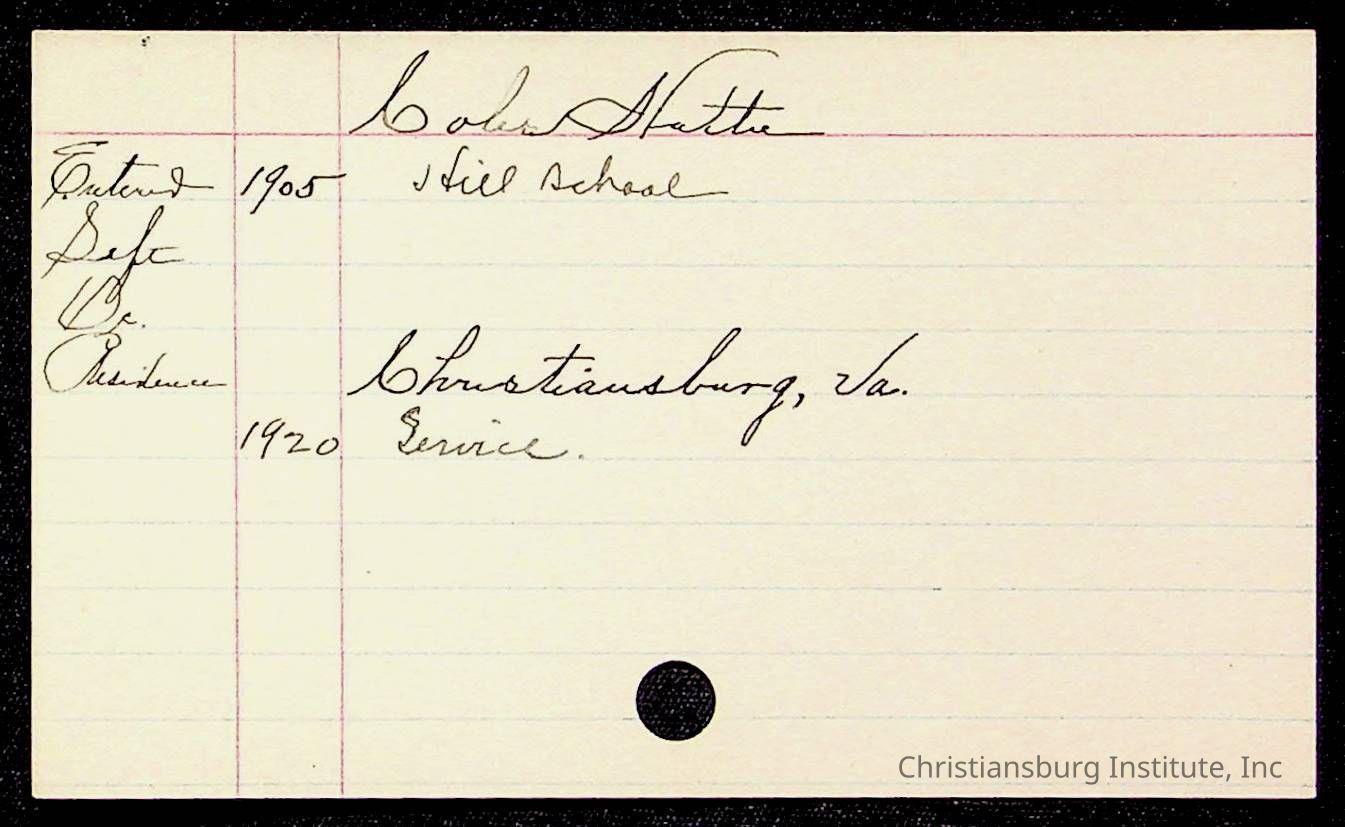 Coles Hattie
Entered 1905 Hill School
Left
Oc.
Residence Christiansburg, Va.
1920 Service.
Christiansburg Institute, Inc